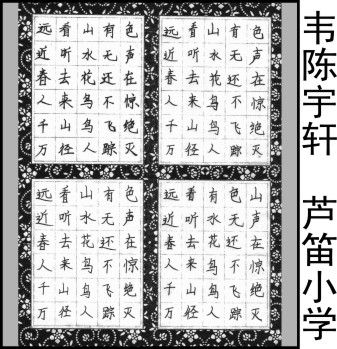 远看山有色
近听水无声
春去花还在
人来鸟不惊
千山鸟飞绝
万径人踪灭
远看山有色
近听水无声
春去花还在
人来鸟不惊
千山鸟飞绝
万径人踪灭
远看山有色
近听水无声
春去花还在
人来鸟不惊
千山鸟飞绝
万径人踪灭
远看有色山
近听水无声
春去花还在
人来鸟不惊
千山鸟飞绝
万径人踪灭
韦陈宇轩 芦笛小学